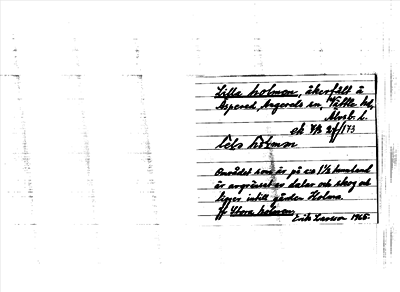 Lilla holmen, åkerfält å
Asperud, Angereds sn, Vättle hd,
Älvsb. l.
ek 7/B 2f/173
Området som är på ca 1 1/2 tunnland
är avgränsat av dalar och skog och
ligger intill gården Holma.
Jf Stora holmen.
Erik Larsson 1965